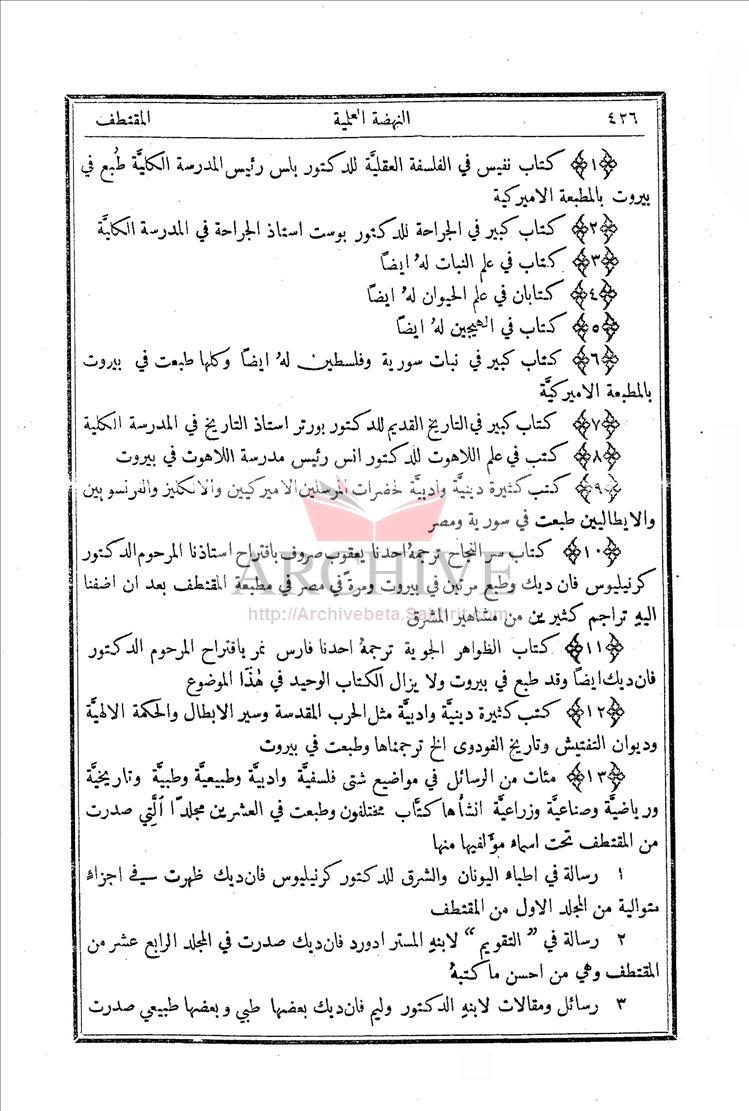 ٤٢٦ النهضة العلمية المقتطف
﴿١﴾ كتاب نفيس في الفلسفة العقليَّة للدكتور بلس رئيس المدرسة الكليَّة طُبع في
بيروت بالمطبعة الاميركية
﴿٢﴾ كتاب كبير في الجراحة للدكتور بوست استاذ الجراحة في المدرسة الكليَّة
﴿٣﴾ كتاب في علم النبات لهُ ايضاً
﴿٤﴾ كتابان في علم الحيوان لهُ ايضاً
﴿٥﴾ كتاب في الهيجين لهُ ايضاً
﴿٦﴾ كتاب كبير في نبات سورية وفلسطين لهُ ايضاً وكلها طبعت في بيروت
بالمطبعة الاميركيَّة
﴿٧﴾ كتاب كبير في التاريخ القديم للدكتور بورتر استاذ التاريخ في المدرسة الكلية
﴿٨﴾ كتب في علم اللاهوت للدكتور انس رئيس مدرسة اللاهوت في بيروت
﴿٩﴾ كتب كثيرة دينيَّة وادبيَّة لحضرات المرسلين الاميركيين والانكليز والفرنسويين
والايطاليين طبعت في سورية ومصر
﴿١٠﴾ كتاب سر النجاح ترجمهُ احدنا يعقوب صروف باقتراح استاذنا المرحوم الدكتور
كرنيليوس فان ديك وطبع مرتين في بيروت ومرة في مصر في مطبعة المقتطف بعد ان اضفنا
اليهِ تراجم كثيرين من مشاهير المشرق
ARCHIVE
http://Archivebeta.Sakhrit.com
﴿١١﴾ كتاب الظواهر الجوية ترجمهُ احدنا فارس نمر باقتراح المرحوم الدكتور
فان ديك ايضاً وقد طبع في بيروت ولا يزال الكتاب الوحيد في هٰذا الموضوع
﴿١٢﴾ كتب كثيرة دينيَّة وادبيَّة مثل الحرب المقدسة وسير الابطال والحكمة الالهيَّة
وديوان التفتيش وتاريخ الفودوى الخ ترجمناها وطبعت في بيروت
﴿١٣﴾ مئات من الرسائل في مواضيع شتى فلسفيَّة وادبيَّة وطبيعيَّة وطبية وتاريخيَّة
ورياضيَّة وصناعيَّة وزراعيَّة انشأها كتَّاب مختلفون وطبعت في العشرين مجلداً التي صدرت
من المقتطف تحت اسماء مؤلفيها منها
١ رسالة في اطباء اليونان والشرق للدكتور كرنيليوس فان ديك ظهرت في اجزاءٍ
متوالية من المجلد الاول من المقتطف
٢ رسالة في " التقويم " لابنهِ المستر ادورد فان ديك صدرت في المجلد الرابع عشر من
المقتطف وهي من احسن ما كتبهُ
٣ رسائل ومقالات لابنهِ الدكتور وليم فان ديك بعضها طبي وبعضها طبيعي صدرت